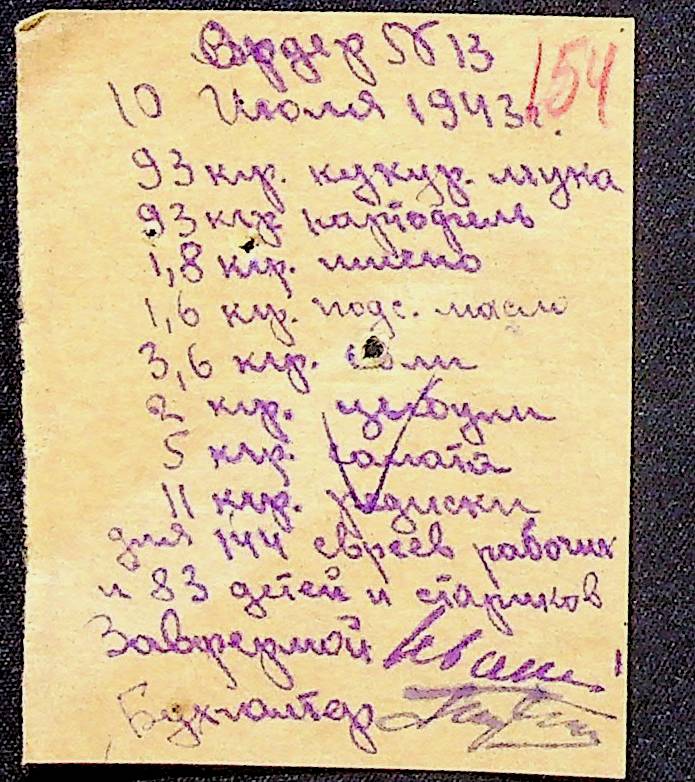 Ордер № 13
154
10 Июля 1943 г.
93 кгр. кукур. мука
93 кгр. картофель
1,8 кгр. пшено
1,6 кгр. подс. масло
3,6 кгр. соли
2 кгр. цыбули
5 кгр. салата
11 кгр. редиски
для 144 евреев рабочих
и 83 детей и стариков
Завфермой
Бухгалтер